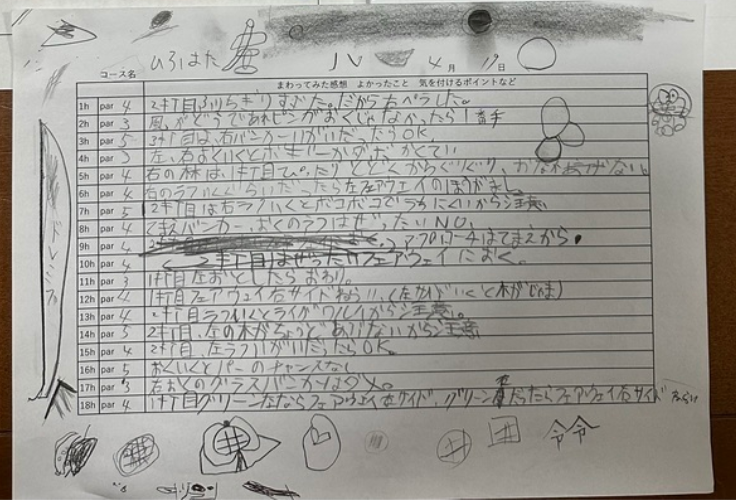 コース名 ひろはた 4月19日
まわってみた感想 よかったこと 気を付けるポイントなど
1h par 4 2打目ふりちぎりすぎた。だから右ペラした。
2h par 3 風がどうであれピンがおくじゃなかったら1番手
3h par 5 3打目は、右バンカーいがいだったらOK
4h par 3 左、右おくいくと
5h par 4 右の林は、1打目ぴったりとどくから
6h par 4 右のラフいくぐらいだったら左フェアウェイのほうがまし
7h par 5 2打目は右ラフいくとボコボコでうちにくいから注意
8h par 4 てまえバンカー、おくのラフはぜったいNO,
9h par 4 アプローチはてまえから。
10h par 4 2打目はぜったいフェアウェイにおく。
11h par 3 1打目左おとしたらおわり。
12h par 4 1打目フェアウェイ右サイドねらい、(左サイドいくと木がじゃま)
13h par 4 2打目ラフいくとライがワルイから注意。
14h par 5 2打目、左の木がちょうどあぶないから注意
15h par 4 2打目、左ラフいがいだったらOK。
16h par 5 おくいくとパーのチャンスなし
17h par 3 右おくのグラスバンカーはダメ。
18h par 4 1打目グリーン左ならフェアウェイ右サイド、グリーン右だったらフェアウェイ右サイドねらい
ドレミファ